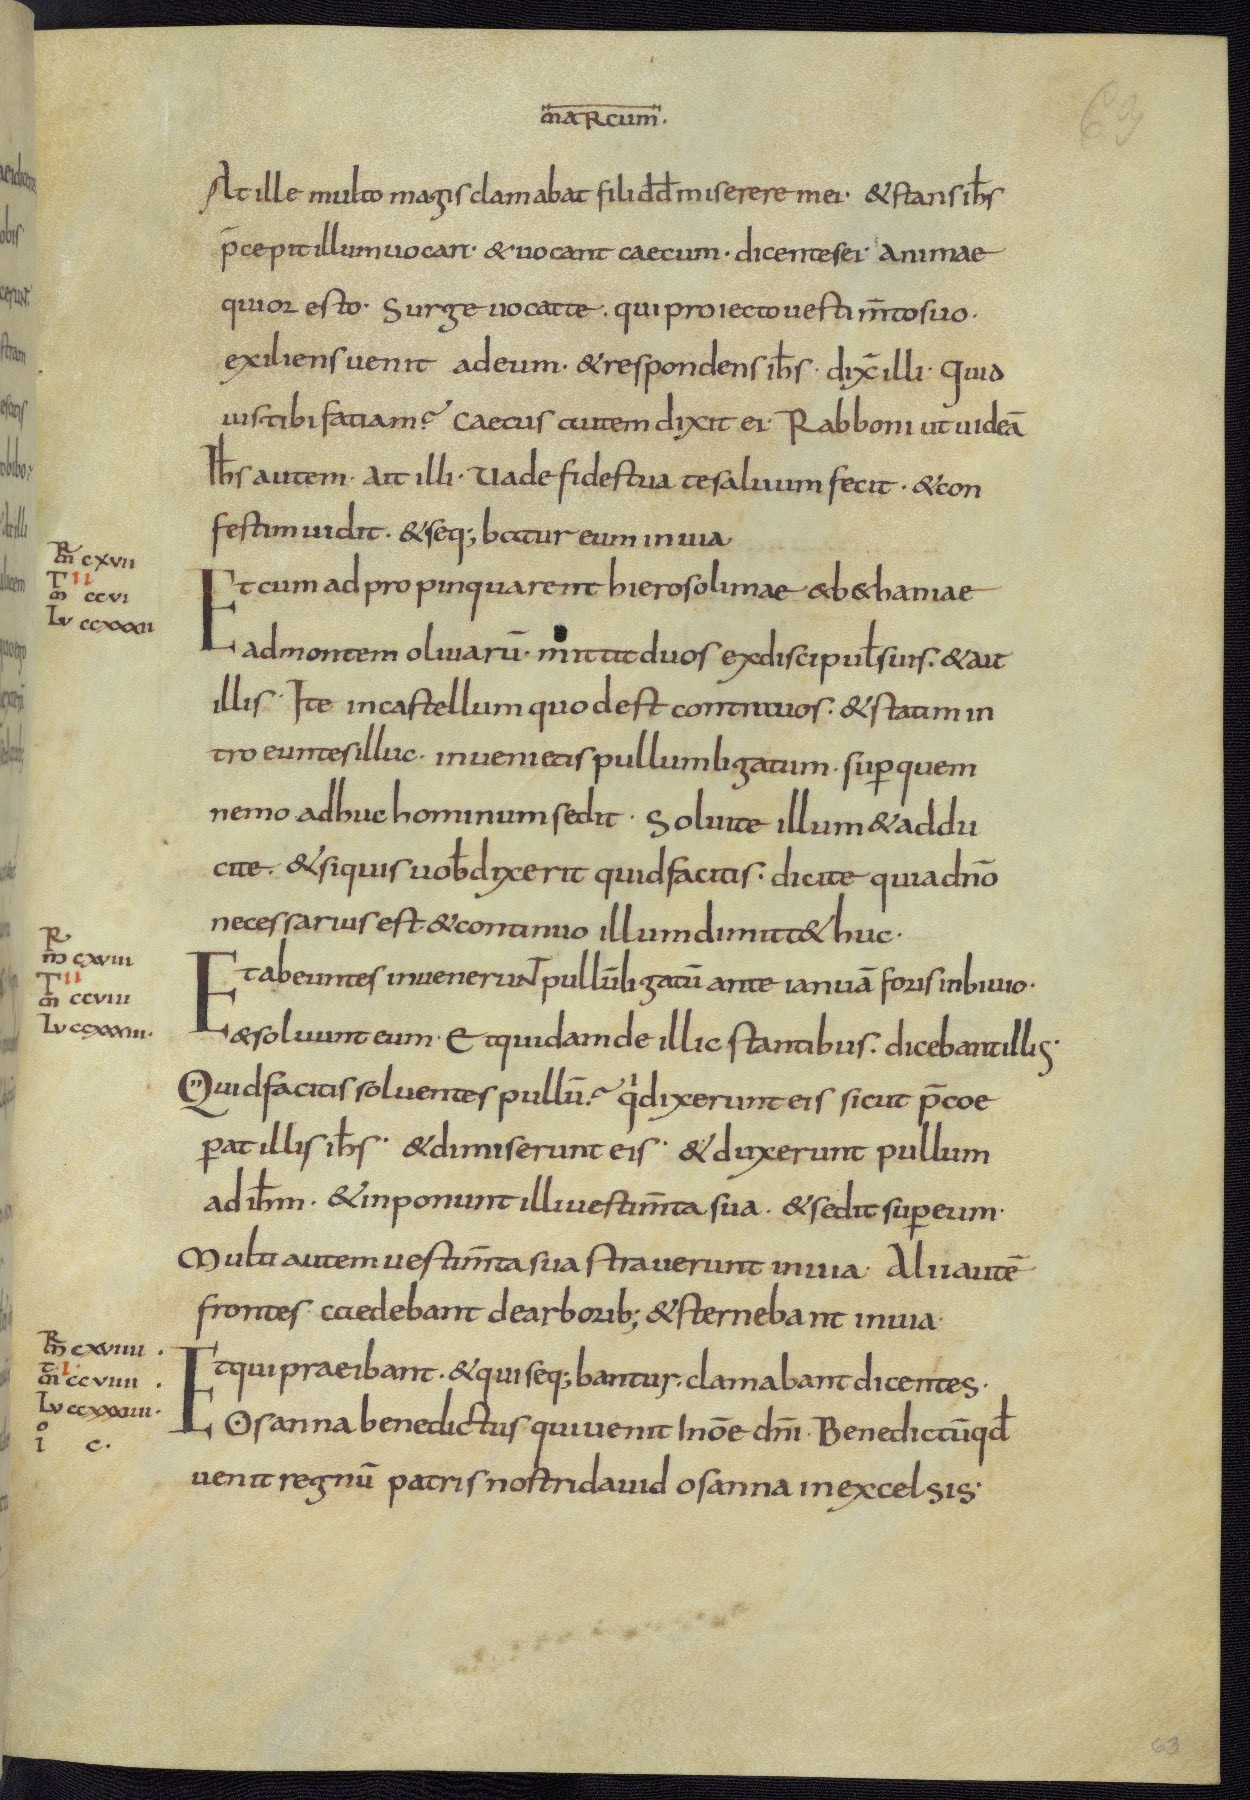 mARcum.
63
At ille multo magis clamabat fili dđ miserere mei· & stans ih̄s
p̄cepit illum uocari· & uocant caecum· dicentes ei· Animae
quior esto· Surge uocat te. qui proiecto uestim̄to suo·
exiliens uenit ad eum· & respondens ih̄s· dix̄ illi· Quid
uis tibi faciam? Caecus autem dixit ei· Rabboni ut uideā
Ih̄s autem· Ait illi· Uade fides tua te saluum fecit· & con
festim uidit· & seq; batur eum in uia
Et cum adpropinquarent hierosolimae & b&haniae
ad montem oliuarū· mittit duos ex discipul̄ suis. & ait
illis· Ite in castellum quod est contra uos· & statim in
tro euntes illuc· inuenietis pullum ligatum· sup̱ quem
nemo adhuc hominum sedit· Soluite illum & addu
cite. & si quis uob̄ dixerit quid facitis· dicite quia dn̄o
necessarius est & continuo illum dimitt& huc·
Et abeuntes inueneruNT pullū ligatū ante ianuā foris in biuio·
& soluunt eum· Et quidam de illic stantibus. dicebant illis·
Quid facitis soluentes pullū? qi dixerunt eis sicut p̄coe
p̱at illis ih̄s· & dimiserunt eis· & duxerunt pullum
ad ih̄m· & inponunt illi uestim̄ta sua· & sedit sup̱ eum·
Multi autem uestim̄ta sua strauerunt in uia· Alii autē
frontes caedebant de arborib; & sternebant in uia·
Et qui praeibant· & qui seq; bantur· clamabant dicentes·
Osanna benedictus qui uenit In nōe dn̄i· Benedictū qđ
uenit regnū patris nostri dauid osanna in excelsis·
R
m̄ cxvii
T II
m̄ ccvi
Lv ccxxxii
R
m̄ cxviii
T II
m̄ ccviii
Lv ccxxxiii·
R
m̄ cxviiii·
t I
m̄ ccviiii·
Lv ccxxxiiii·
o
i c·
63